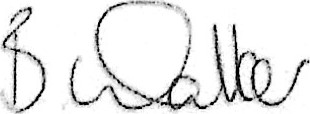 B Walker